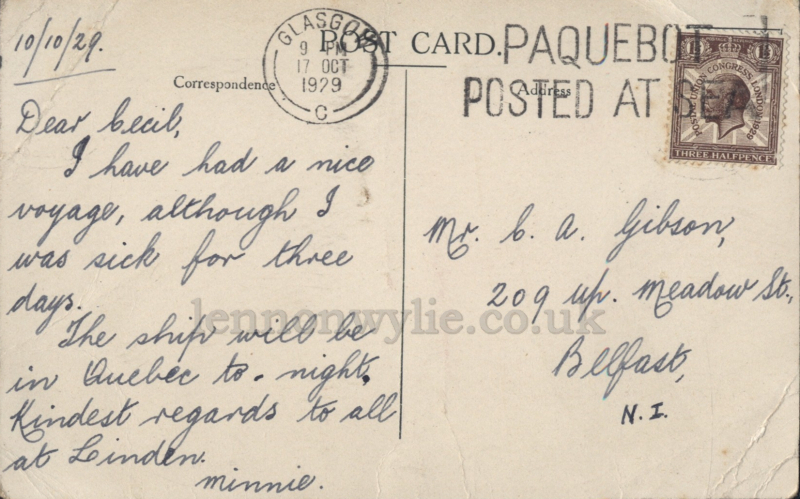 10/10/29.
POST CARD.
Correspondence
Address
GLASGOW
9 PM
17 OCT
1929
C
PAQUEBOT
POSTED AT SEA
POSTAL UNION CONGRESS LONDON 1929
THREE HALFPENCE
Dear Cecil,
I have had a nice
voyage, although I
was sick for three
days.
The ship will be
in Quebec to-night.
Kindest regards to all
at Linden.
Minnie.
Mr. C. A. Gibson,
209 Up. Meadow St.,
Belfast,
N.I.
lennonwylie.co.uk